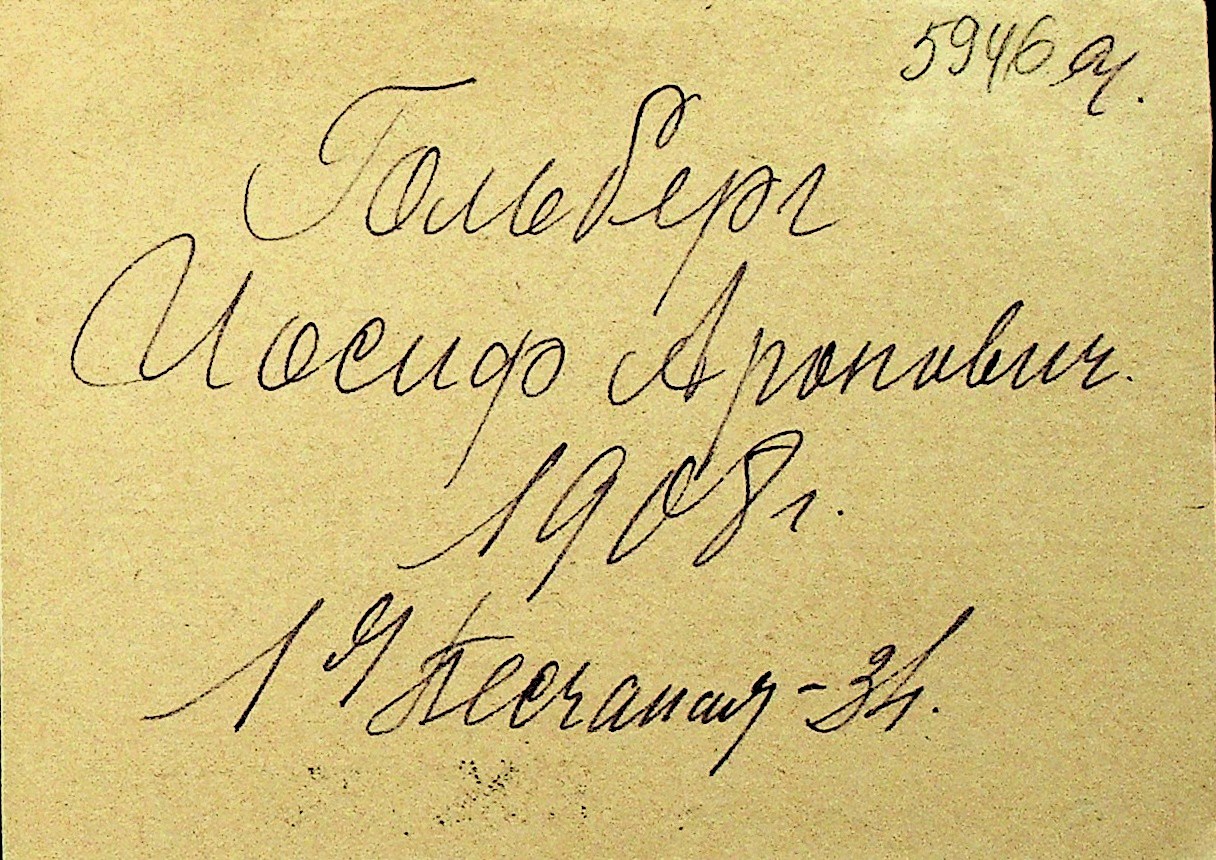 5946 а.
Гольберг
Иосиф Аронович.
1908 г.
1я Песчаная - 31.